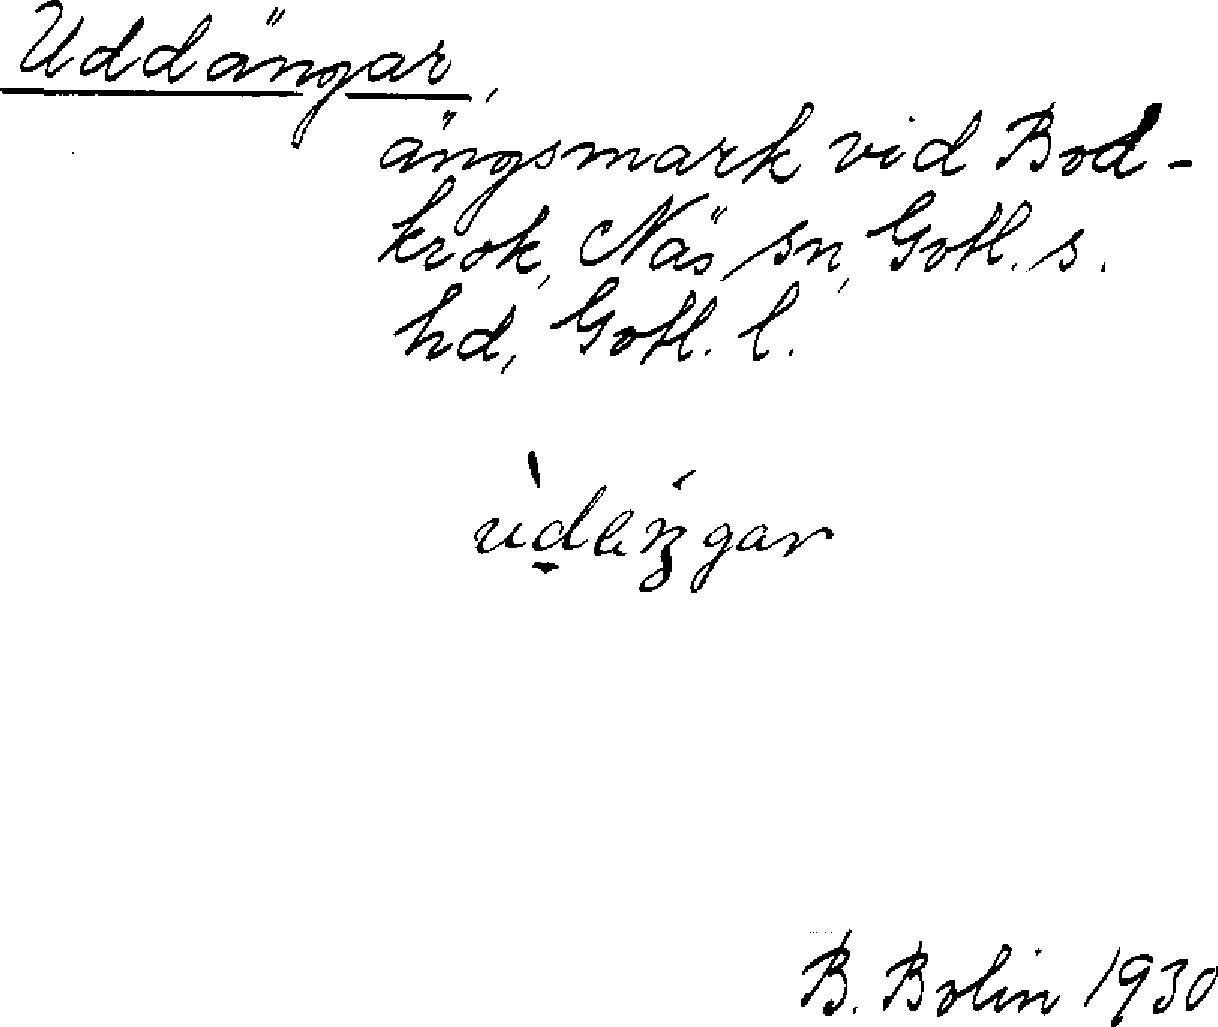 Uddängar,
ängsmark vid Bod-
krok, Näs sn, Gotl. s.
hd, Gotl. l.
B. Bolin 1930